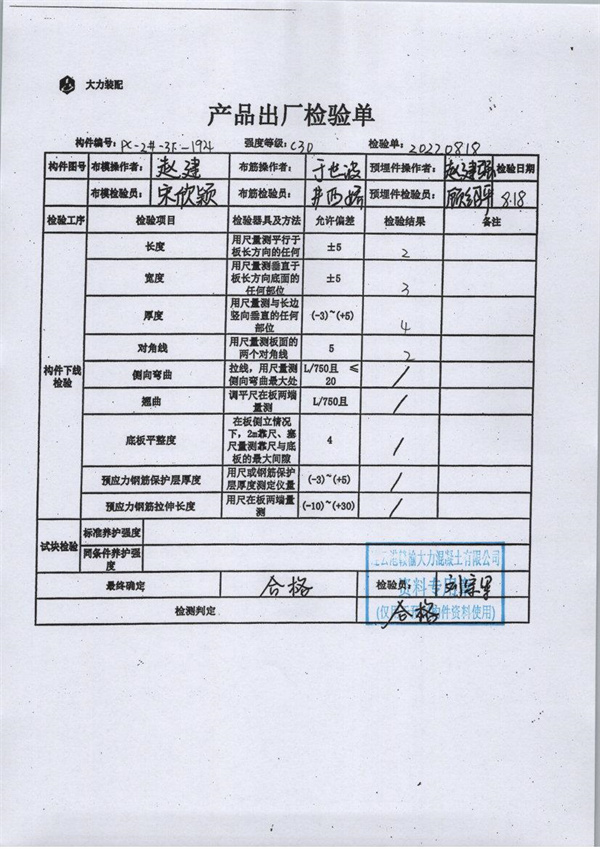 大力装配
产品出厂检验单
构件编号: PC-2#-3F-194 强度等级: C30 检验单: 20220818
构件图号 布模操作者: 赵建 布筋操作者: 于世波 预埋件操作者: 赵建强 检验日期
布模检验员: 宋欣颖 布筋检验员: 预埋件检验员: 8.18
检验工序 检验项目 检验器具及方法 允许偏差 检验结果 备注
构件下线检验
长度 用尺量测平行于板长方向的任何 ±5 2
宽度 用尺量测垂直于板长方向底面的任何部位 ±5 3
厚度 用尺量测与长边竖向垂直的任何部位 (-3)~(+5) 4
对角线 用尺量测板面的两个对角线 5 2
侧向弯曲 拉线，用尺量测侧向弯曲最大处 L/750且 ≤20 /
翘曲 调平尺在板两端量测 L/750且 /
底板平整度 在板侧立情况下，2m靠尺、塞尺量测靠尺与底板的最大间隙 4 /
预应力钢筋保护层厚度 用尺或钢筋保护层厚度测定仪量 (-3)~(+5) /
预应力钢筋拉伸长度 用尺在板两端量测 (-10)~(+30) /
试块检验 标准养护强度
同条件养护强度
最终确定 合格 检验员:
检测判定 合格
大力混凝土有限公司
资料专用
件资料使用)